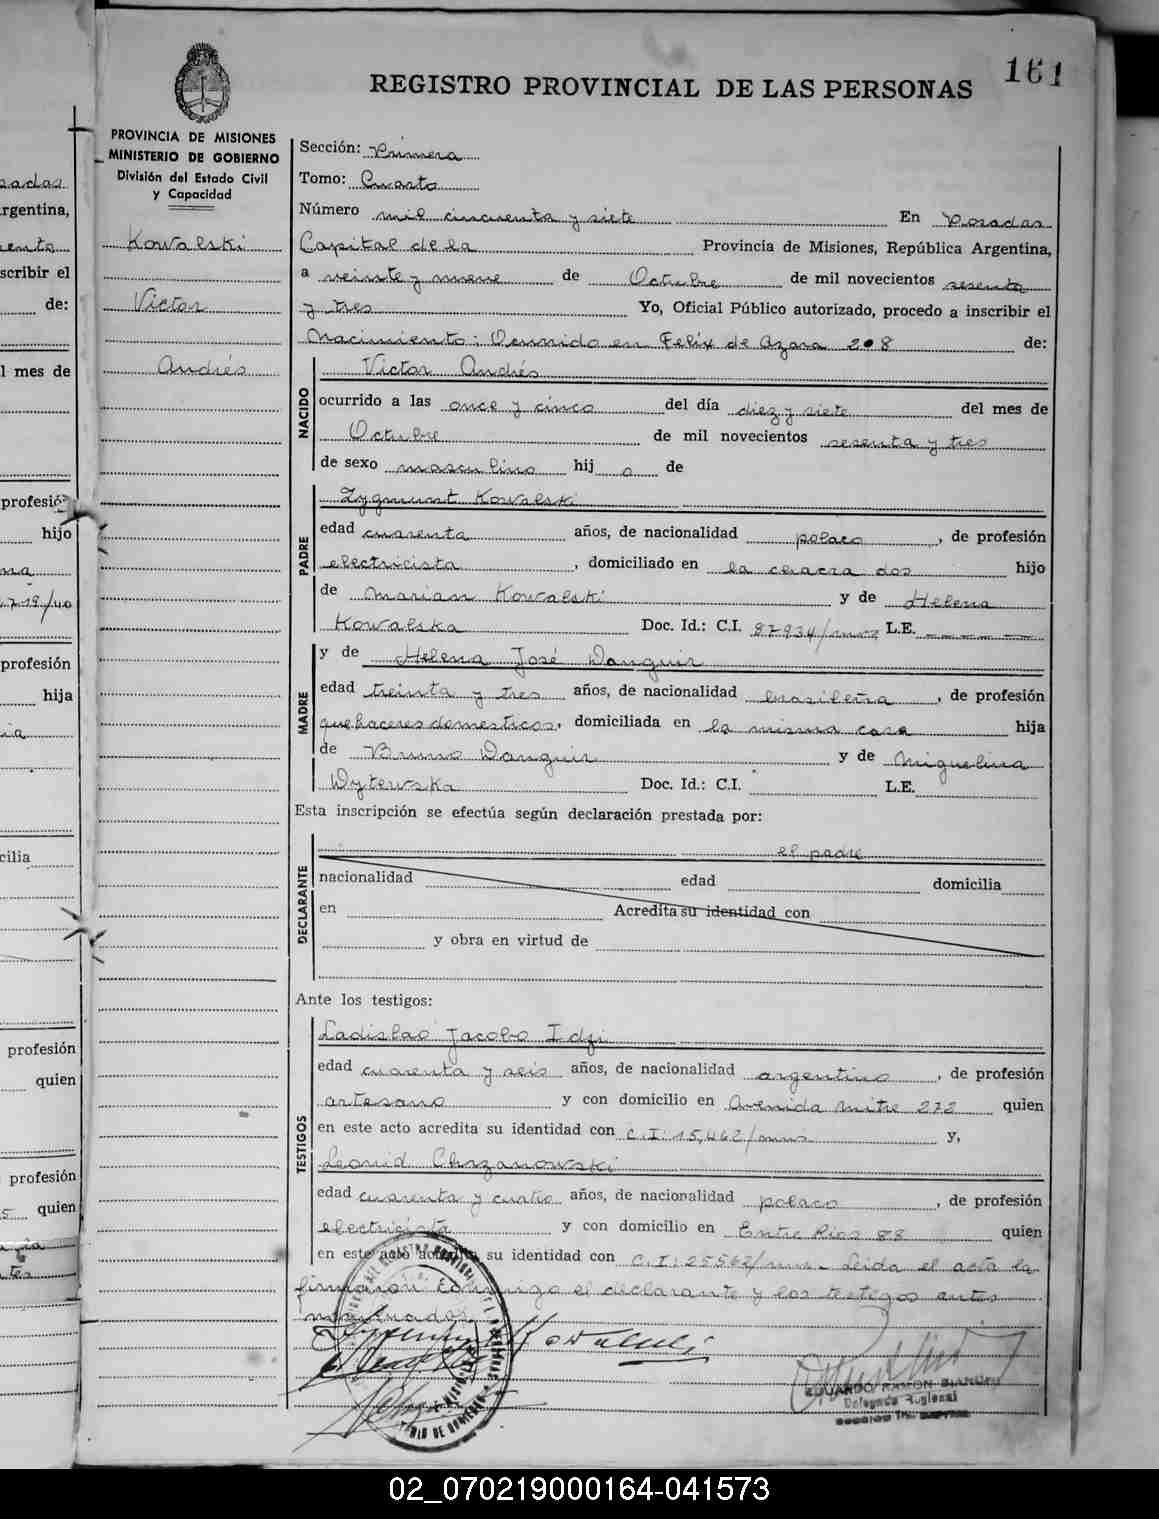 161
REGISTRO PROVINCIAL DE LAS PERSONAS
PROVINCIA DE MISIONES
MINISTERIO DE GOBIERNO
División del Estado Civil
y Capacidad
Kowalski
Víctor
Andrés
Sección: Primera
Tomo: Cuarto
Número mil cincuenta y siete En Posadas
Capital de la Provincia de Misiones, República Argentina,
a veinte y nueve de Octubre de mil novecientos sesenta
y tres Yo, Oficial Público autorizado, procedo a inscribir el
Nacimiento: Ocurrido en Felix de Azara 208 de:
NACIDO
Víctor Andrés
ocurrido a las once y cinco del día diez y siete del mes de
Octubre de mil novecientos sesenta y tres
de sexo masculino hijo de
PADRE
Zygmunt Kowalski
edad cuarenta años, de nacionalidad polaco, de profesión
electricista, domiciliado en la chacra dos hijo
de Marian Kowalski y de Helena
Kowalska Doc. Id.: C.I. 87934/mnes L.E.
MADRE
y de Helena José Wanguir
edad treinta y tres años, de nacionalidad brasileña, de profesión
quehaceres domesticos, domiciliada en la misma casa hija
de Bruno Wanguir y de Miguelina
Wytewska Doc. Id.: C.I. L.E.
Esta inscripción se efectúa según declaración prestada por:
DECLARANTE
el padre
nacionalidad edad domicilia
en Acredita su identidad con
y obra en virtud de
Ante los testigos:
TESTIGOS
Ladislao Jacobo Idzi
edad cuarenta y seis años, de nacionalidad argentino, de profesión
artesano y con domicilio en Avenida Mitre 272 quien
en este acto acredita su identidad con C.I: 15,462/mns y,
Leonid Chrzanowski
edad cuarenta y cuatro años, de nacionalidad polaco, de profesión
electricista y con domicilio en Entre Rios 88 quien
en este acto acredita su identidad con C.I: 25562/mns- Leída el acta la
firmaron conmigo el declarante y los testigos antes
nombrados
EDUARDO RAMON
Delegado Regional
02_070219000164-041573